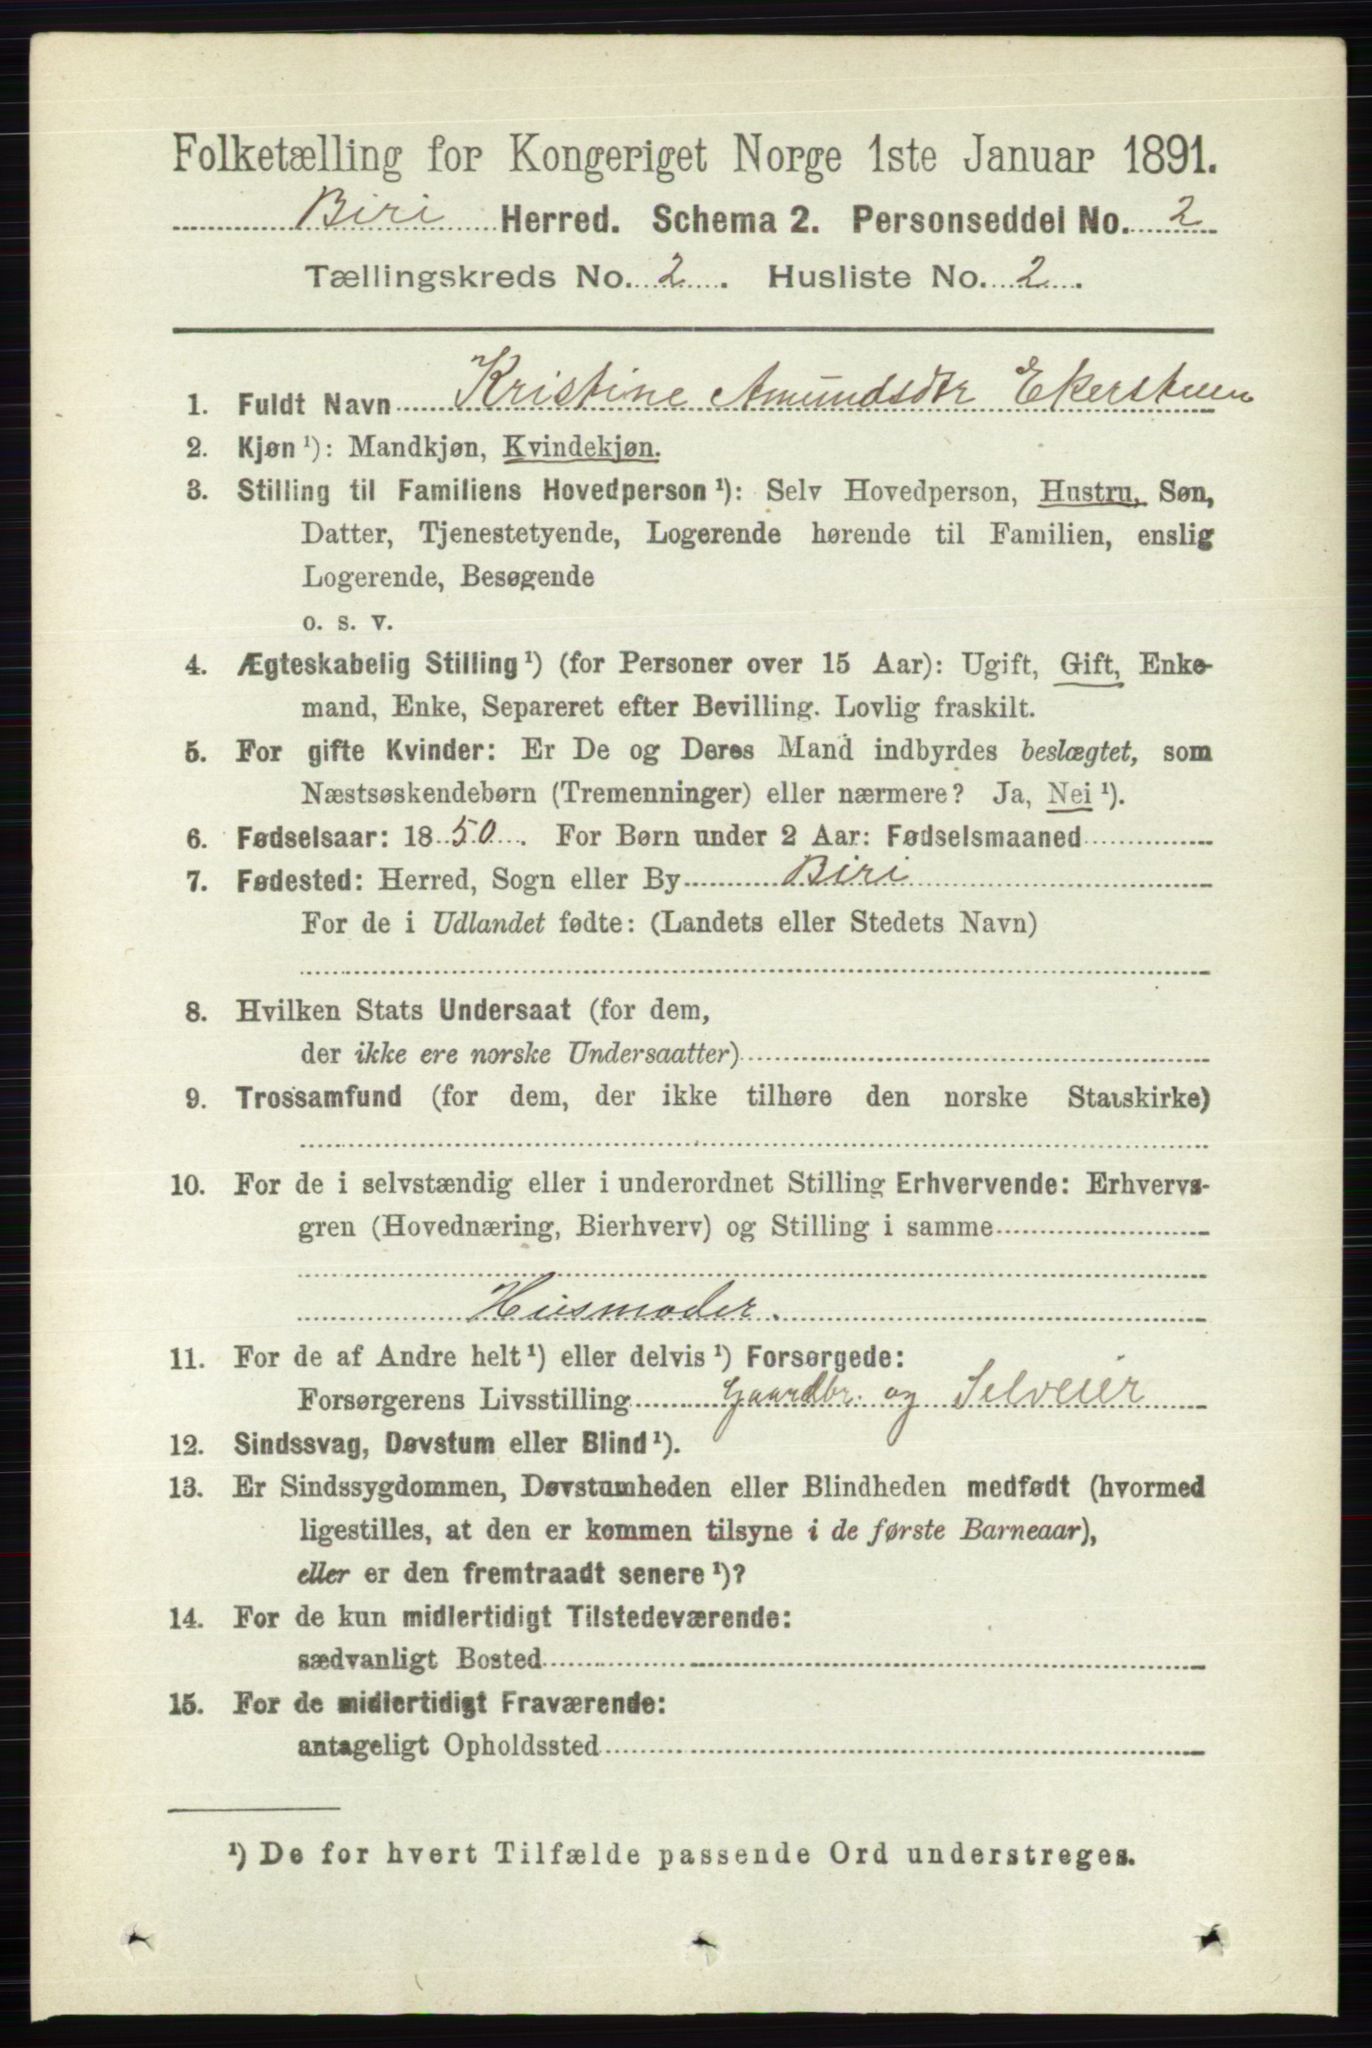 Folketælling for Kongeriget Norge 1ste Januar 1891.
Biri Herred. Schema 2. Personseddel No. 2
Tællingskreds No. 2. Husliste No. 2.
1. Fuldt Navn Kristine Amundsdtr Ekerstuen
2. Kjøn ¹): Mandkjøn, Kvindekjøn.
3. Stilling til Familiens Hovedperson ¹): Selv Hovedperson, Hustru, Søn,
Datter, Tjenestetyende, Logerende hørende til Familien, enslig
Logerende, Besøgende
o. s. v.
4. Ægteskabelig Stilling ¹) (for Personer over 15 Aar): Ugift, Gift, Enke-
mand, Enke, Separeret efter Bevilling. Lovlig fraskilt.
5. For gifte Kvinder: Er De og Deres Mand indbyrdes beslægtet, som
Næstsøskendebørn (Tremenninger) eller nærmere? Ja, Nei ¹).
6. Fødselsaar: 1850. For Børn under 2 Aar: Fødselsmaaned
7. Fødested: Herred, Sogn eller By Biri
For de i Udlandet fødte: (Landets eller Stedets Navn)
8. Hvilken Stats Undersaat (for dem,
der ikke ere norske Undersaatter)
9. Trossamfund (for dem, der ikke tilhøre den norske Statskirke)
10. For de i selvstændig eller i underordnet Stilling Erhvervende: Erhvervs-
gren (Hovednæring, Bierhverv) og Stilling i samme
Husmoder.
11. For de af Andre helt ¹) eller delvis ¹) Forsørgede:
Forsørgerens Livsstilling Gaardbr. og Selveier
12. Sindssvag, Døvstum eller Blind ¹).
13. Er Sindssygdommen, Døvstumheden eller Blindheden medfødt (hvormed
ligestilles, at den er kommen tilsyne i de første Barneaar),
eller er den fremtraadt senere ¹)?
14. For de kun midlertidigt Tilstedeværende:
sædvanligt Bosted
15. For de midlertidigt Fraværende:
antageligt Opholdssted
¹) De for hvert Tilfælde passende Ord understreges.